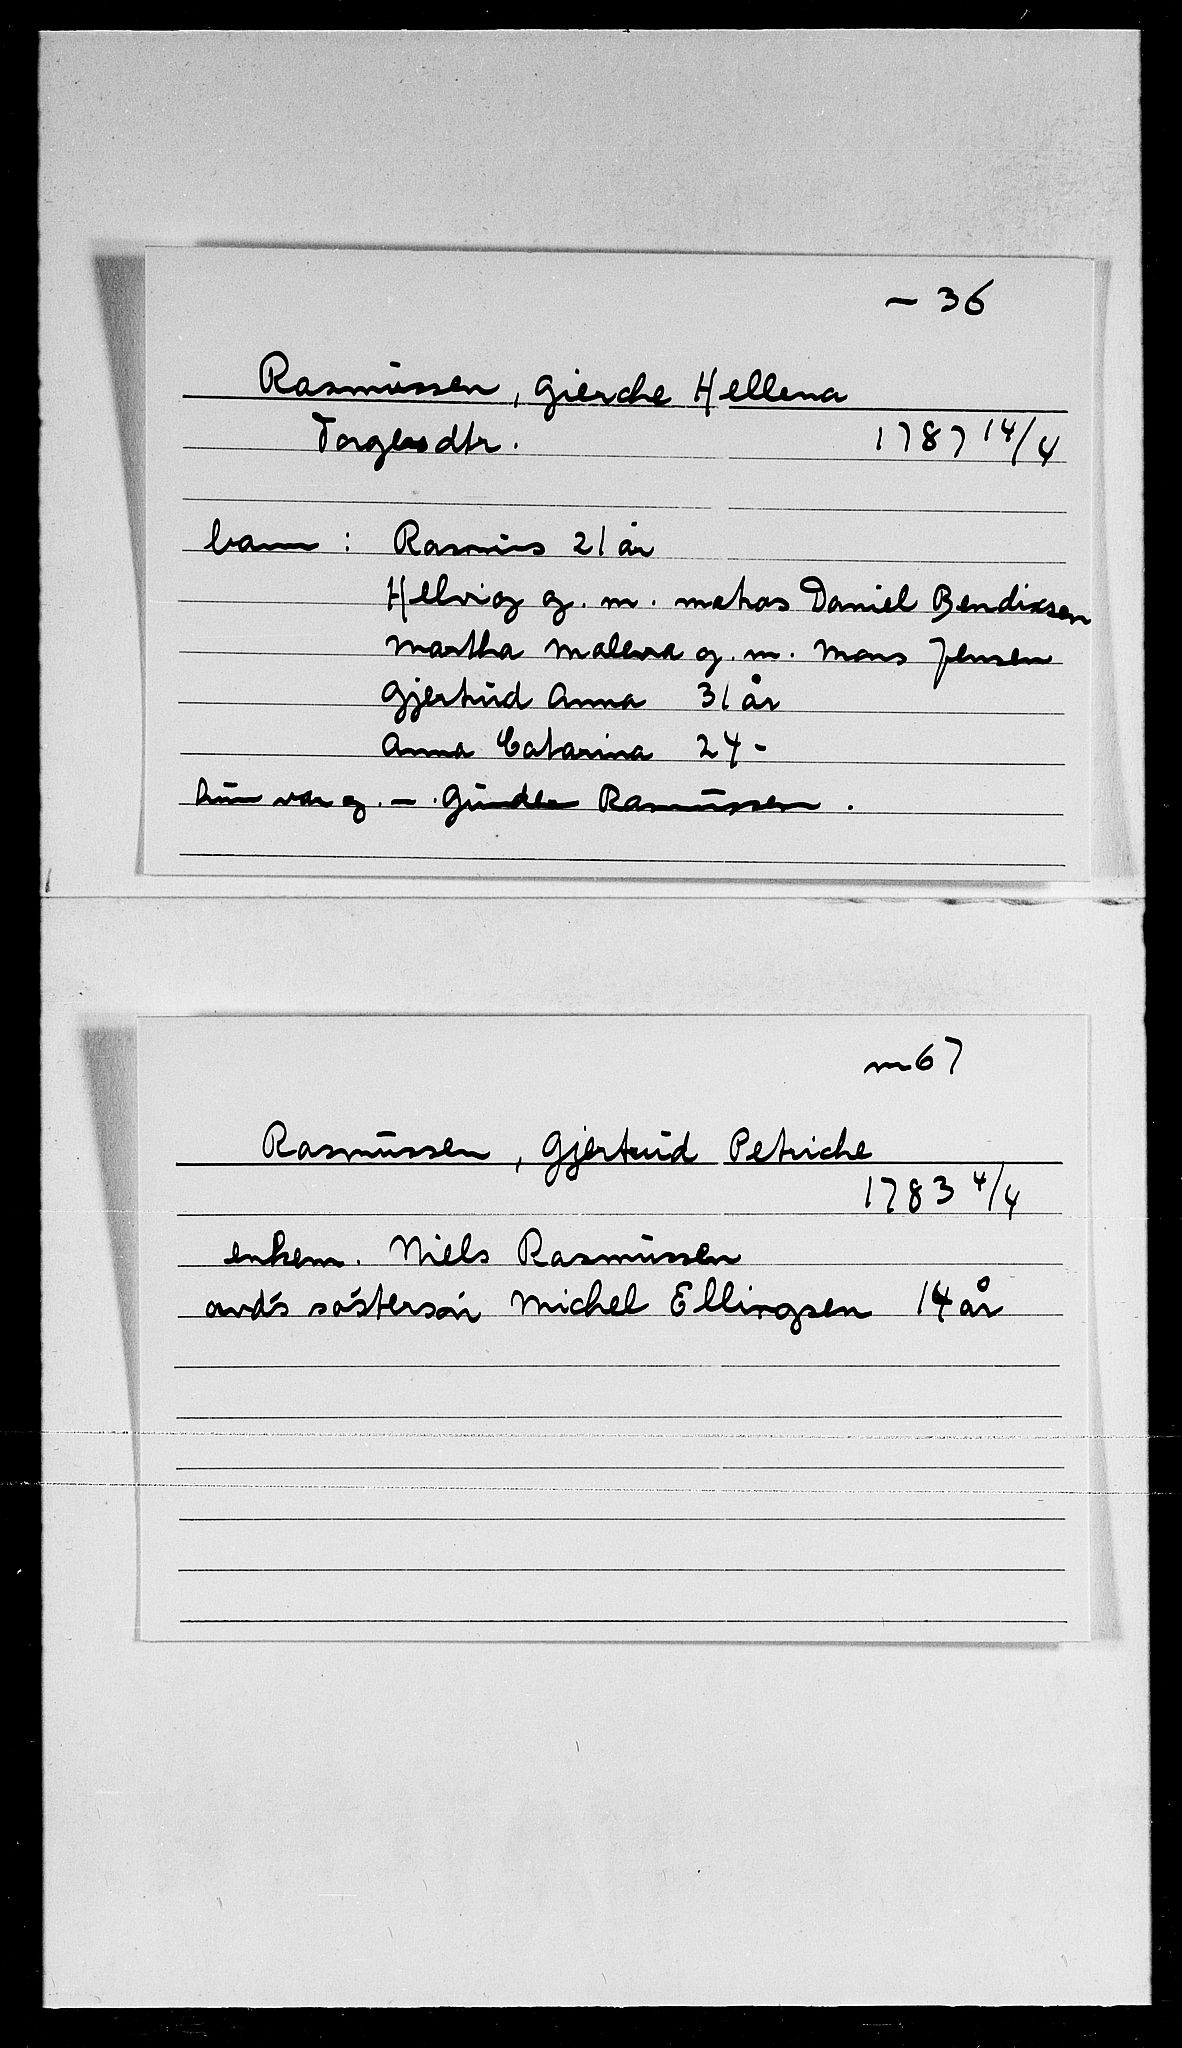 – 36
Rasmussen, Gierche Hellena
Torgersdtr. 1787 14/4
barn : Rasmus 21 år
Helvig g. m. matros Daniel Bendixsen
Martha Malena g. m. Mons Jensen
Gjertrud Anna 31 år
Anna Catarina 24 -
hun var g. – Gunder Rasmussen .
m 67
Rasmussen, Gjertrud Petriche
1783 4/4
enkem. Niels Rasmussen
avd's søstersøn Michel Ellingsen 14 år